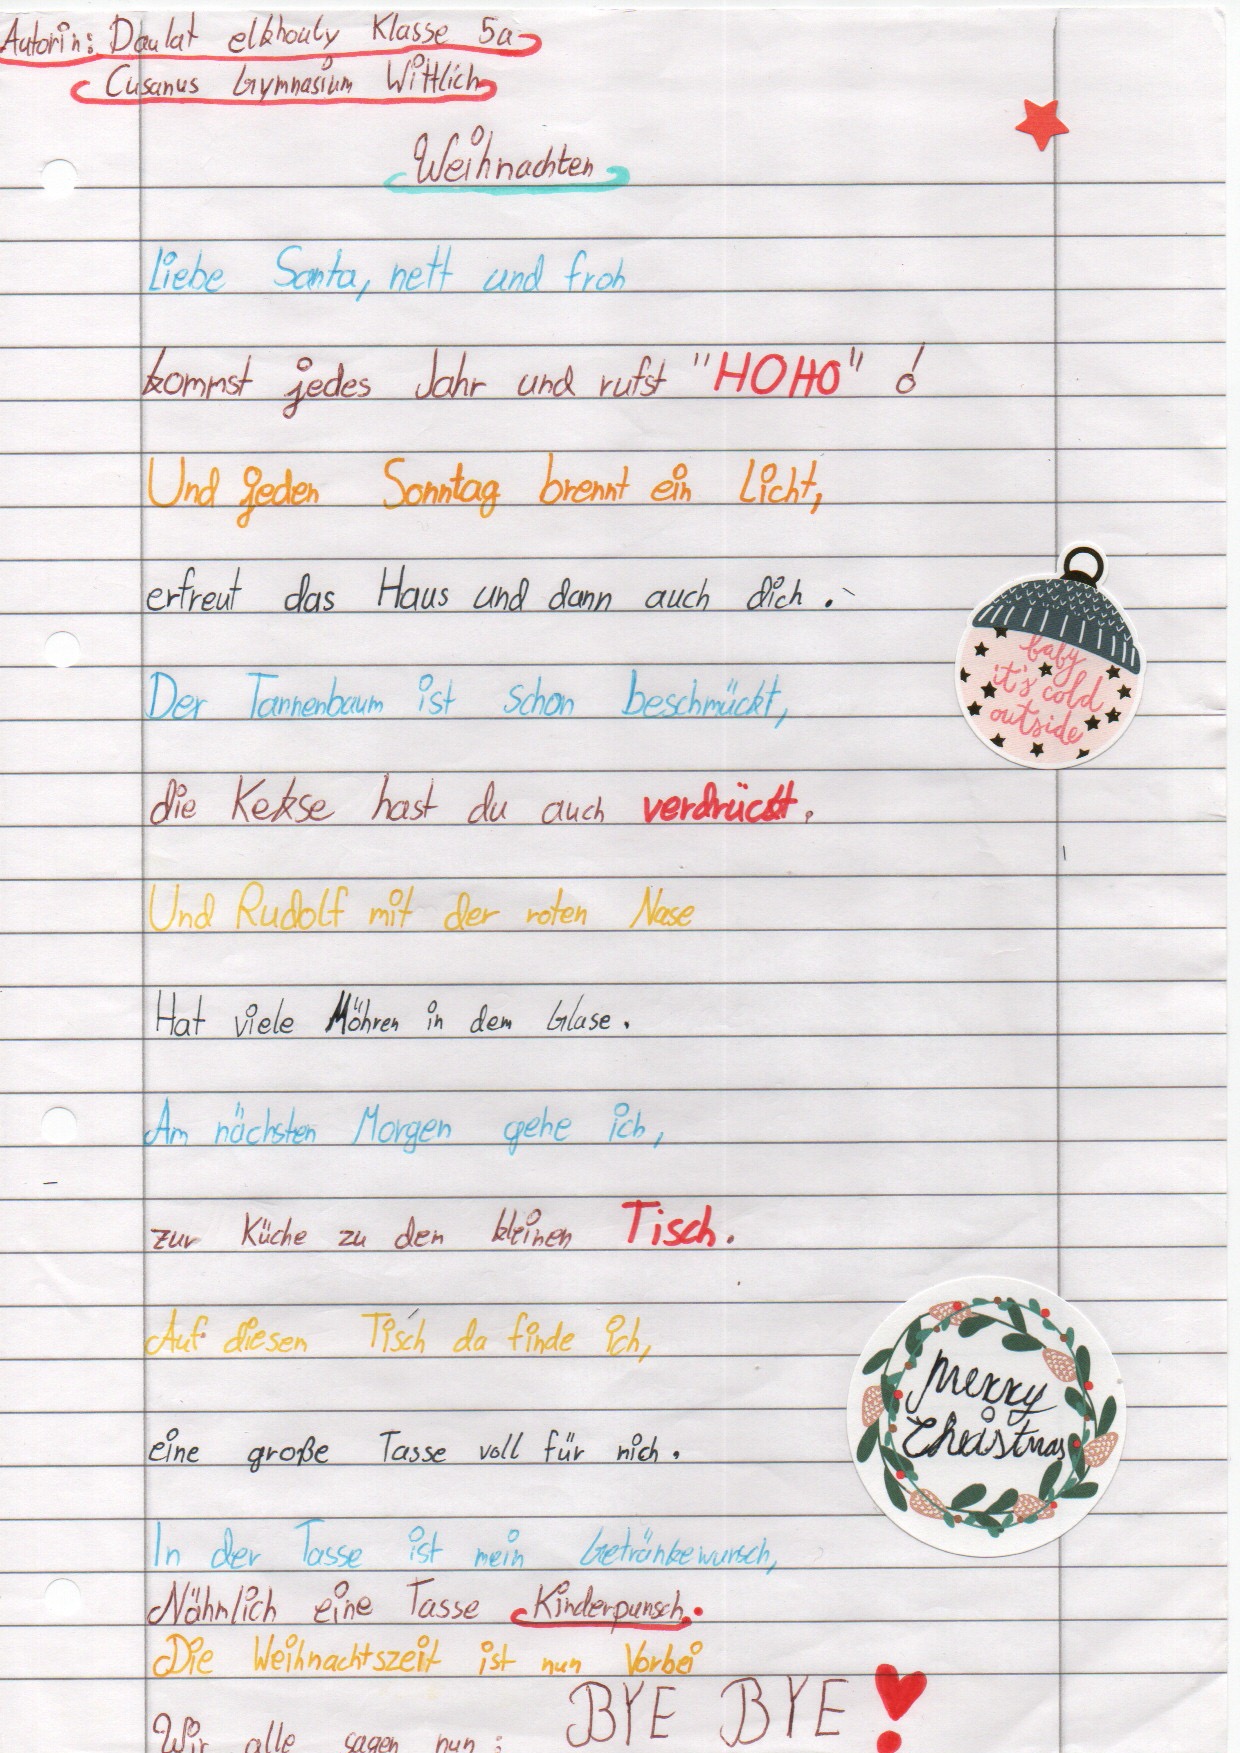 Autorin: Daulat elkhouly Klasse 5a
Cusanus Gymnasium Wittlich
Weihnachten
Liebe Santa, nett und froh
kommst jedes Jahr und rufst "HOHO" !
Und jeden Sonntag brennt ein Licht,
erfreut das Haus und dann auch dich.
baby
it's cold
outside
Der Tannenbaum ist schon beschmückt,
die Kekse hast du auch verdrückt.
Und Rudolf mit der roten Nase
Hat viele Möhren in dem Glase.
Am nächsten Morgen gehe ich,
zur Küche zu den kleinen Tisch.
Auf diesen Tisch da finde ich,
eine große Tasse voll für mich.
merry
christmas
In der Tasse ist mein Getränkewunsch,
Nähmlich eine Tasse Kinderpunsch.
Die Weihnachtszeit ist nun Vorbei
Wir alle sagen nun: BYE BYE!